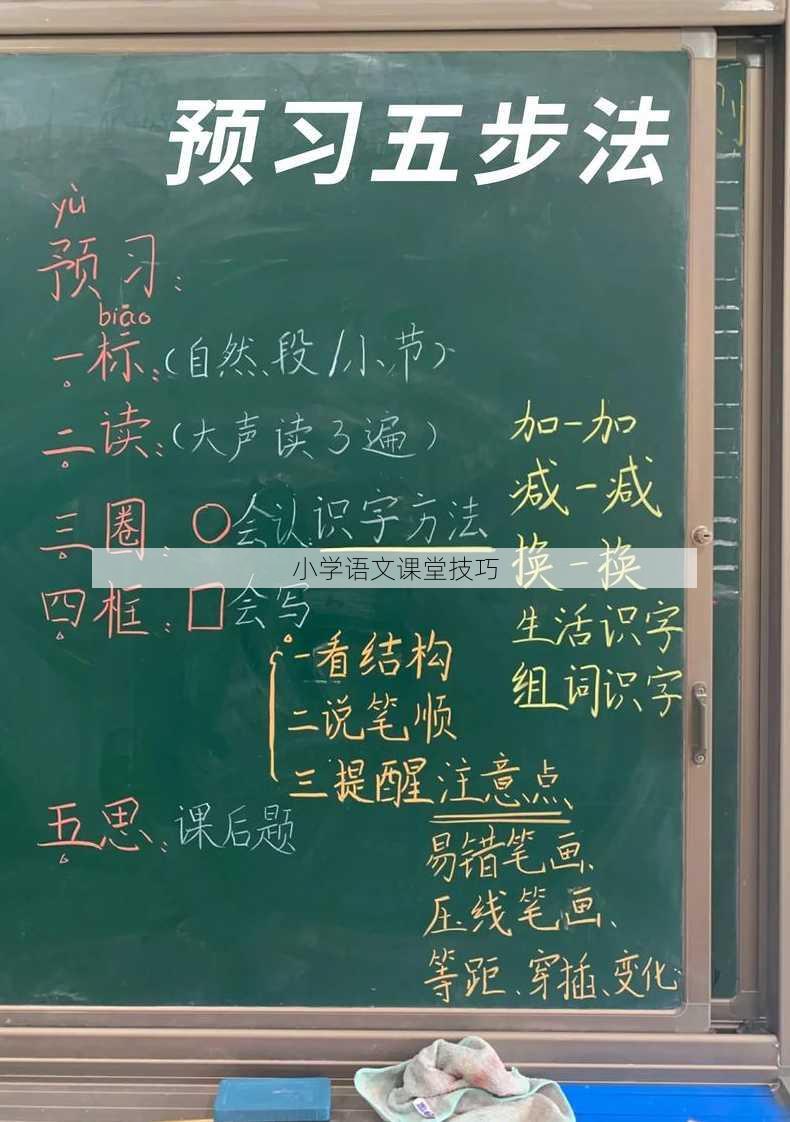 预习五步法
yù
预习:
biāo
一标:(自然段/小节)
二读:(大声读3遍)
三圈:○会认:识字方法
加一加
减一减
换一换
生活识字
组词识字
小学语文课堂技巧
四框:□会写
一看结构
二说笔顺
三提醒注意点
易错笔画、
压线笔画、
等距、穿插、变化
五思:课后题